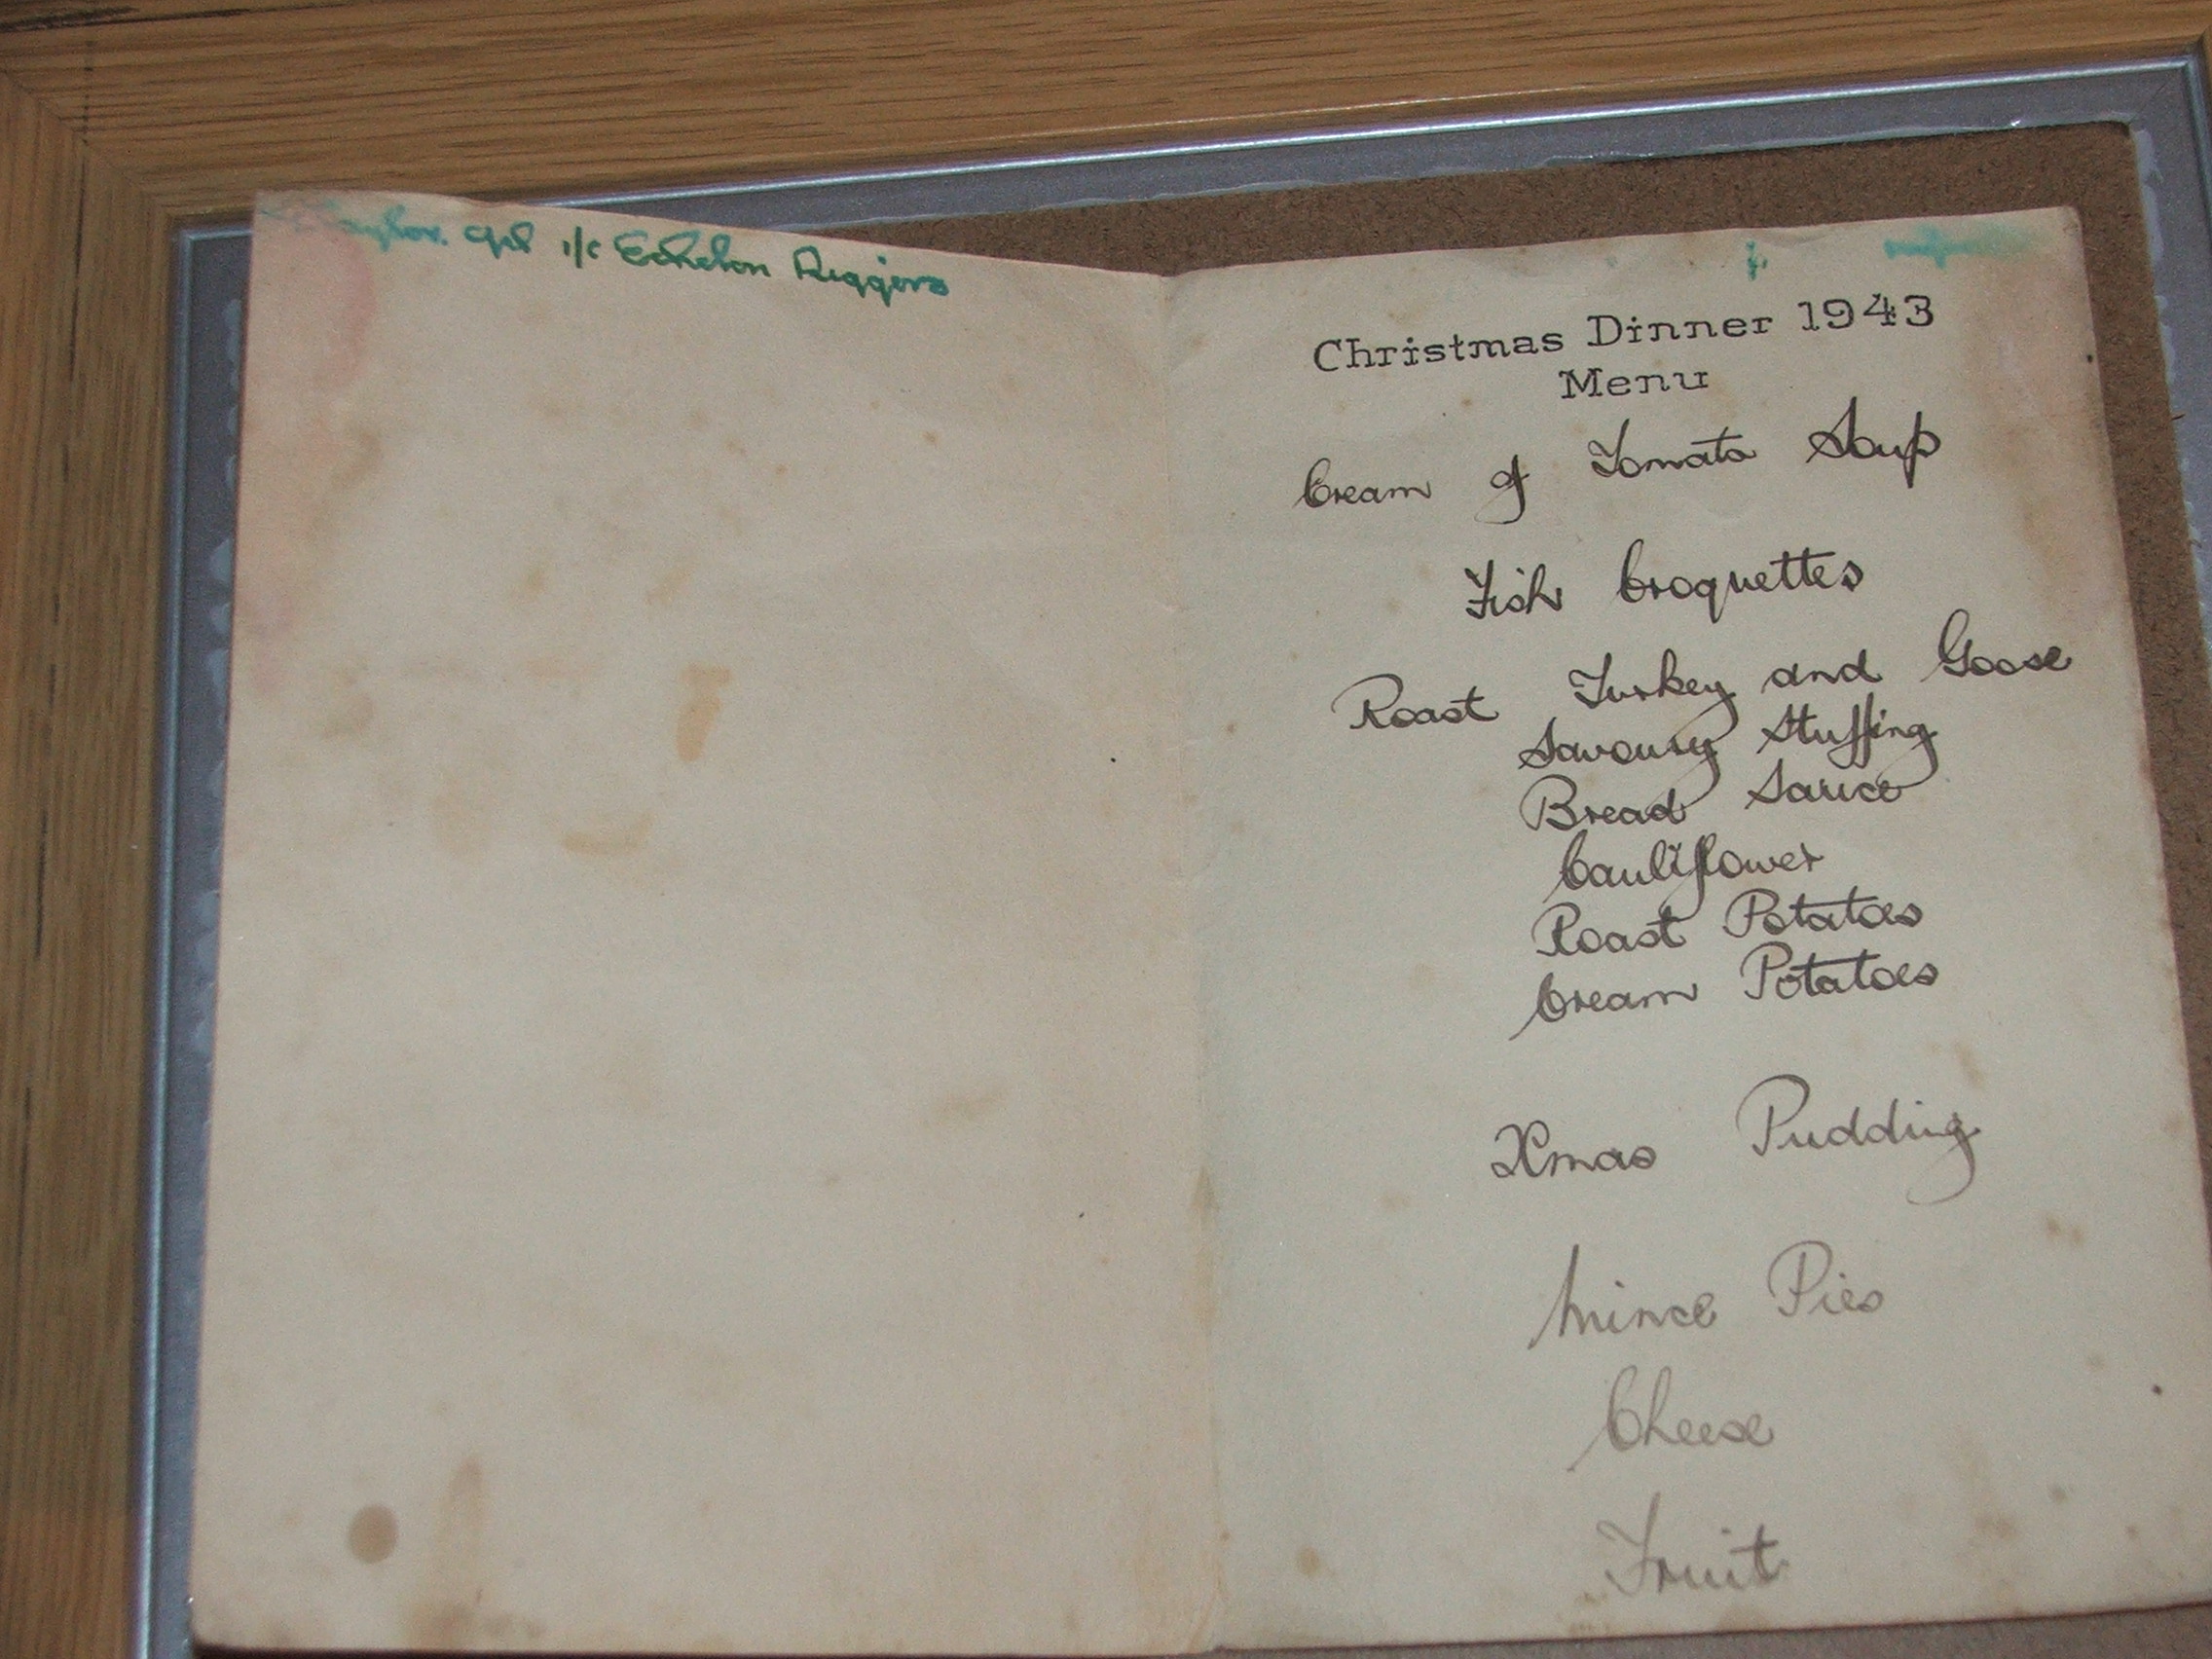 i/c Echelon Riggers
Christmas Dinner 1943
Menu
Cream of Tomato Soup
Fish Croquettes
Roast Turkey and Goose
Savoury Stuffing
Bread Sauce
Cauliflower
Roast Potatoes
Cream Potatoes
Xmas Pudding
Mince Pies
Cheese
Fruit